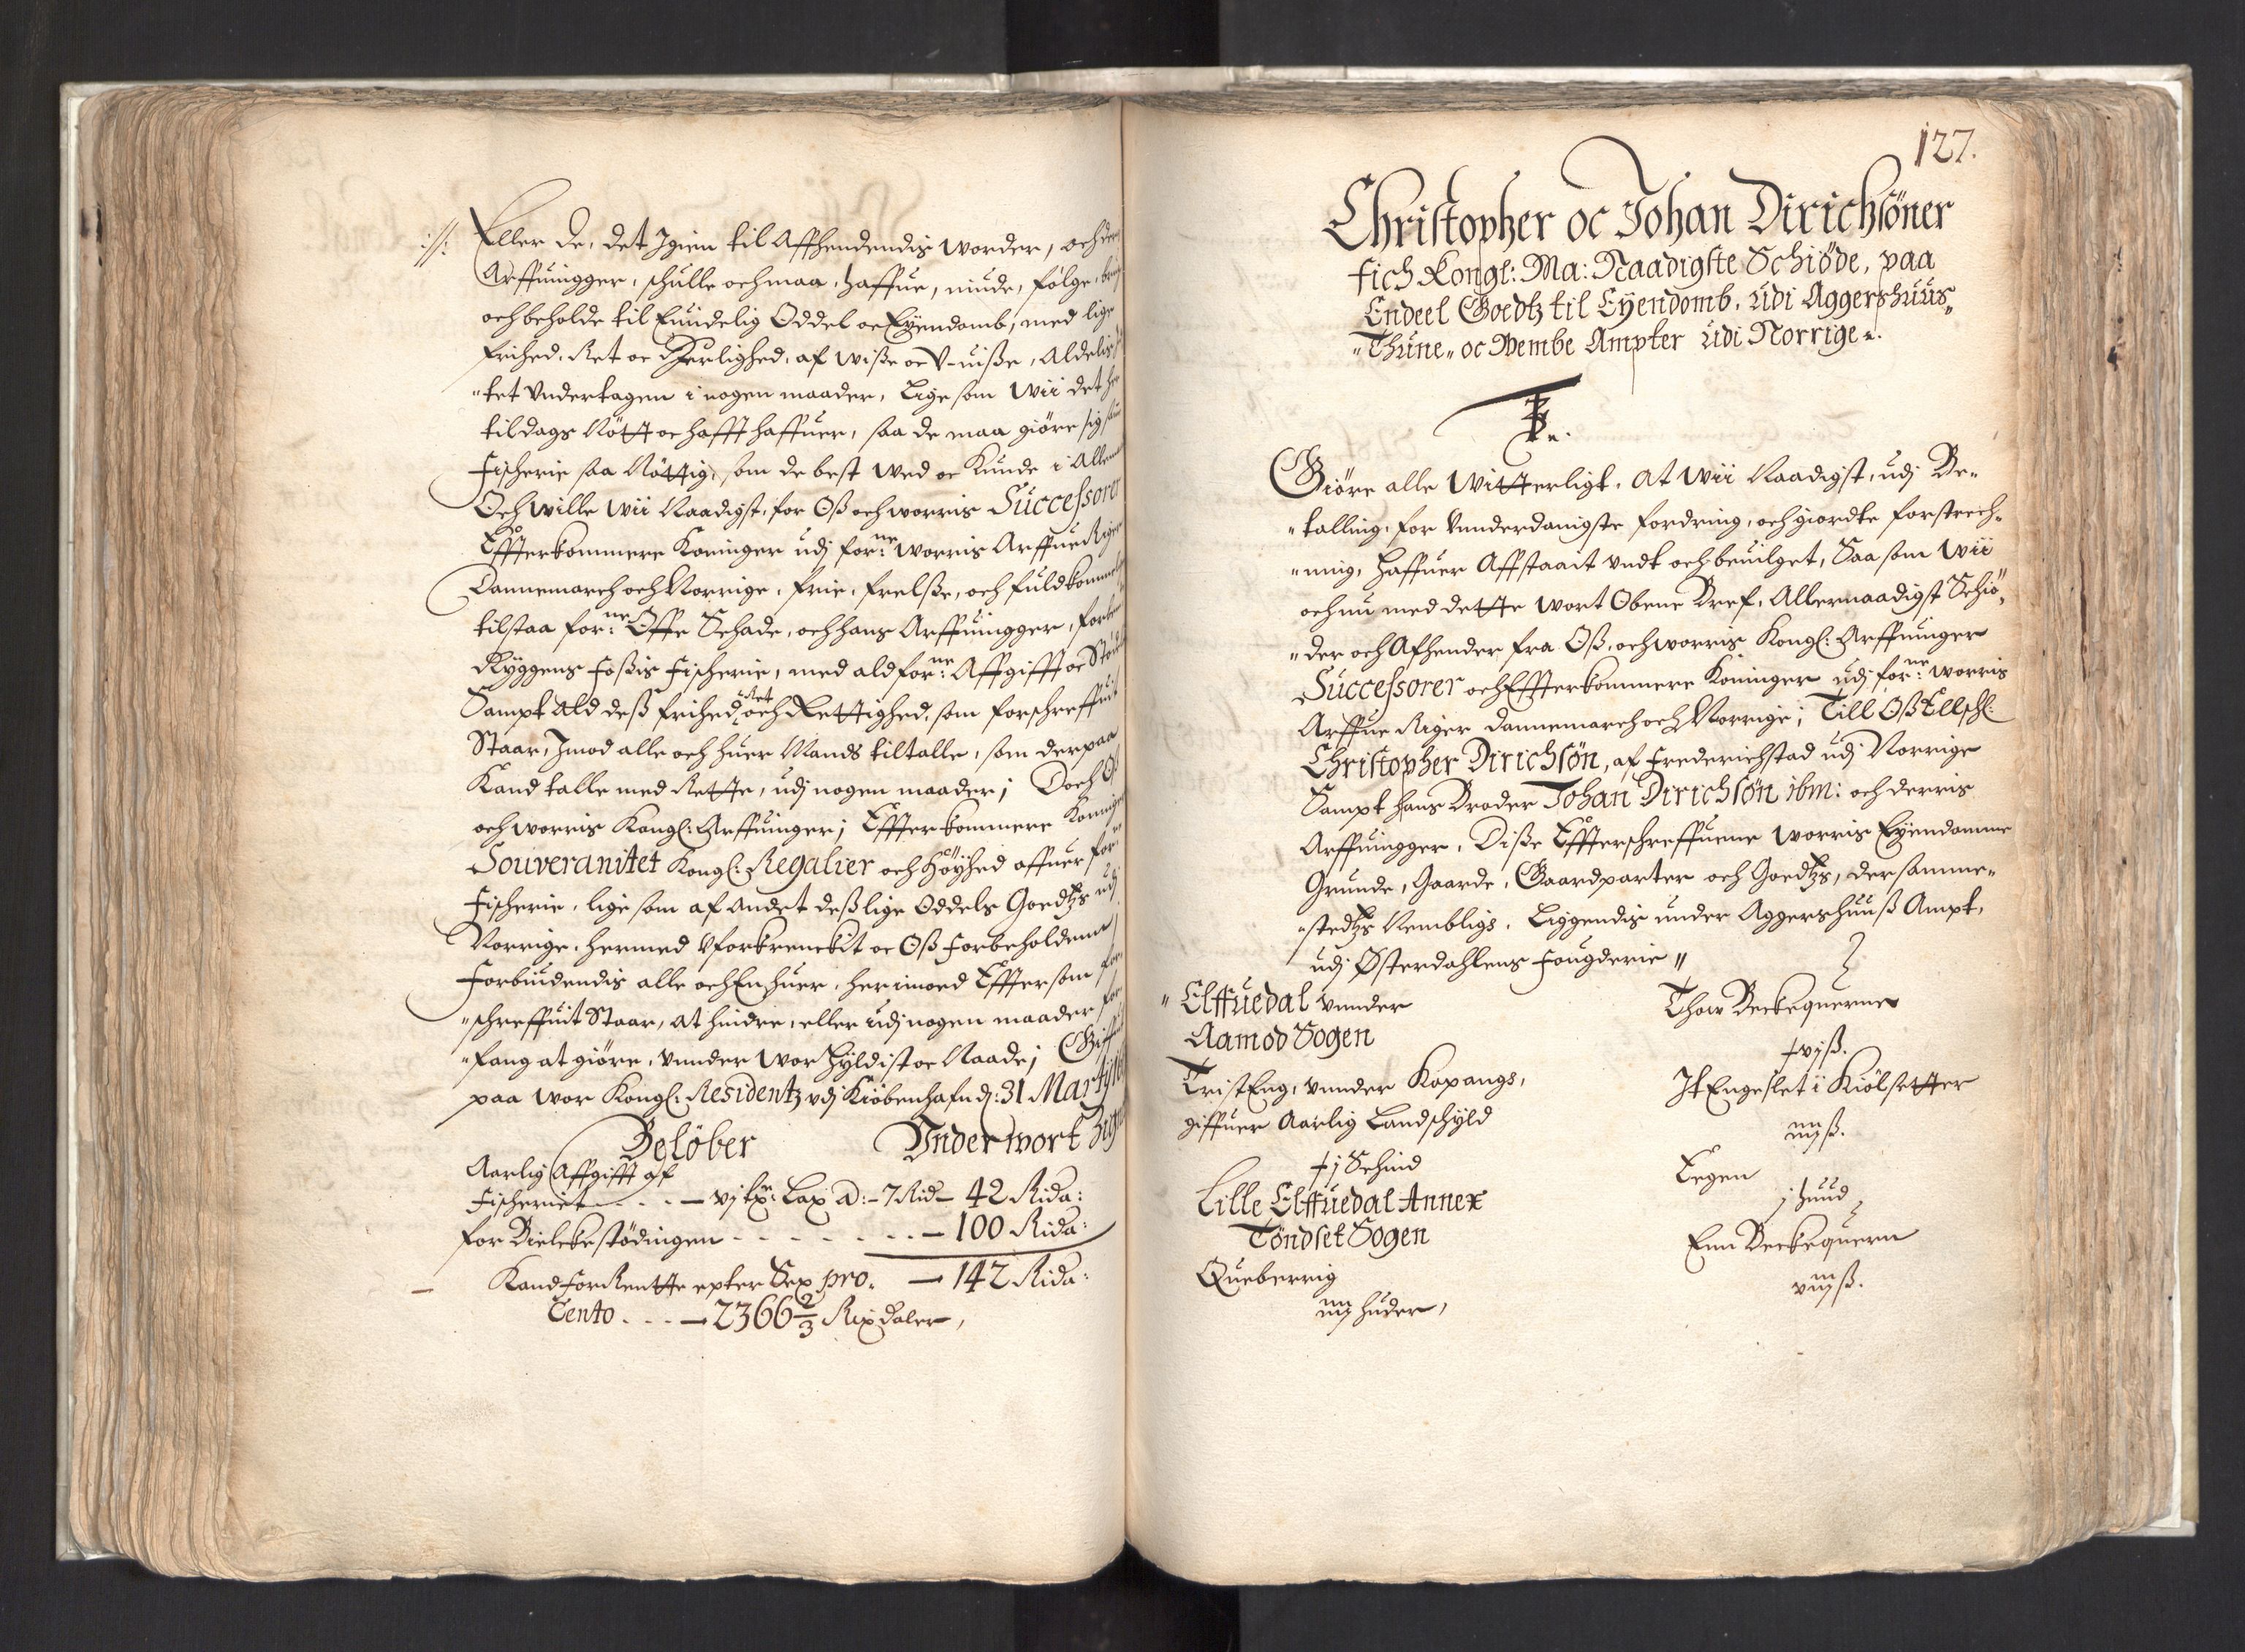 ://: Eller de, det Igien til Affhendendis worder, och der
Arffuingger, schulle och maa, haffue, niude, følge,
och beholde til Euindelig Oddel oc Eÿendomb, med lige
frihed, Ret oc Herlighed, af wiße oc V-uiße, Aldelis
"tet Vndertagen i nogen maader, Lige som Wii det her
til dags Nøtt oc hafft haffuer, saa de maa giøre sig
Fischerie saa Nøttig, som de best wed oc Kunde i Alle
Och wille Wii Naadigst, for Oß och worris Successorer
Effterkommere Koninger udj for:ne worris Arffue Riger
Dannemarch och Norrige, frie, frelße, och fuldkomme
tilstaa for:ne Offe Schade, och hans Arffuingger, for
Rÿggens Foßis Fischerie, med ald for:ne Affgifft oc
Sampt Ald deß frihed, Ret och Rettighed, som forschreffuit
Staar, Imod alle och huer Mands tiltalle, som derpaa
Kand talle med Rette, udj nogen maader; Doch Oß
och worris Kongl: Arffuinger; Effterkommere Koninger
Souveranitet Kongl: Regalier och Höÿhed offuer for:ne
Fischerie, lige som af Andet deßlige Oddels Goedtzs udj
Norrige, hermed Vforkrenckit oc Oß forbeholdene
Forbiudendis alle och Enhuer, herimoed Effter som for
"schreffuit Staar, at hindre, eller udj nogen maader for
"fang at giøre, vnder Wor Hÿldist oc Naade; Giffuit
paa Wor Kongl: Residentz vdj Kiöbenhafn d: 31 Martij
Belöber Vnder wort
Aarlig Affgifft af
Fischeriet - . . - vj tr: Lax a: - 7 Rid - 42 Rida:
for Bielckestødingen - - - - - - . . - 100 Rida:
Kand for Rentte epter Sex pro. - 142 Rida:
Cento . . . - 2366 2/3 Rix daler,
127.
Christopher oc Johan Dirichsöner
fich Kongl: Ma: Naadigste Schiøde, paa
Endeel Goedtz til Eÿendomb, udi Aggershuus,
"Thune" oc Bembe Ampter udi Norrige.
Giøre alle Witterligt, At Wii Naadigst, udj Be-
"talling, for Vnderdanigste fordring, och giordte forstrech-
"ning, haffuer Affstaait vndt och beuilget, Saa som Wii
och nu med dette Wort Obene Bref, Allernaadigst Schiø-
"der och Afhender fra Oß, och worris Kongl: Arffuinger
Successorer och Effterkommere Koninger udj for:ne worris
Arffue Riger Dannemarch och Norrige; Till Oß Ellschl:
Christopher Dirichsön, af Frederichstad udj Norrige
Sampt hans Broder Johan Dirichsön ibm: och derris
Arffuingger, Diße Effterschreffuene worris Eÿendomme
Grunde, Gaarde, Gaardparter och Goedtzs, dersamme-
"stedtzs Nembligs, Liggendis under Aggershuuß Ampt,
udj Østerdahlens Fougderie "
" Elffuedal vnder
Aamod Sogen
Trist Eng, vnder Kopangs,
giffuer Aarlig Landschÿld
+j Schind
Lille Elffuedal Annex
Töndset Sogen
Queberrig
iiij huder,
Thow Beckequerne
+vj ß.
It Engeslet i Kiölsetter
iiij ß.
Eegen
j huud
Enn Beckequern
viij ß.